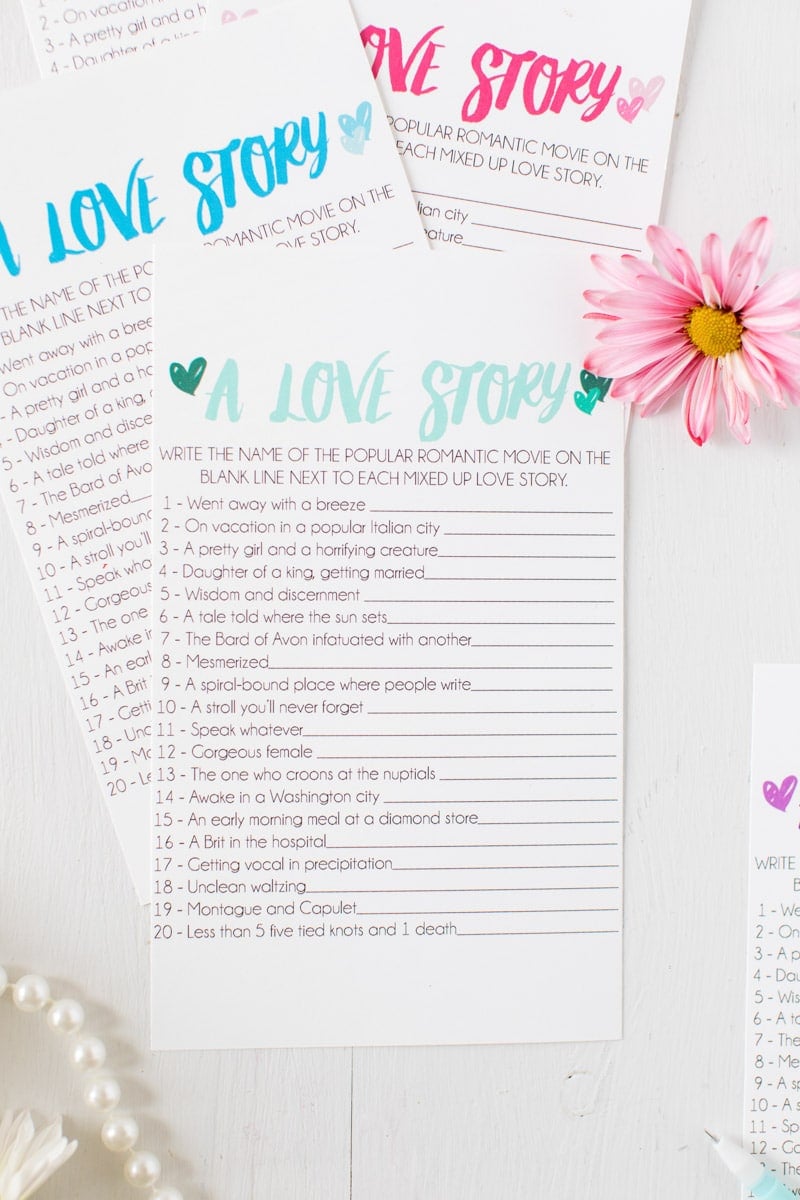 2 - On vacation
3 - A pretty girl and a h
4 - Daughter of a
LOVE STORY
POPULAR ROMANTIC MOVIE ON THE
EACH MIXED UP LOVE STORY.
lian city
eature
A LOVE STORY
THE NAME OF THE PO ROMANTIC MOVIE ON THE
BLANK LINE NEXT TO OVE STORY.
Went away with a bree
On vacation in a pop
- A pretty girl and a ho
- Daughter of a king,
5 - Wisdom and disce
6 - A tale told where
7 - The Bard of Avon
8 - Mesmerized
9 - A spiral-bound
10 - A stroll you'll
11 - Speak wha
12 - Gorgeous
13 - The one
14 - Awake in
15 - An earl
16 - A Brit
17 - Getti
18 - Unc
19 - Mo
20 - Le
A LOVE STORY
WRITE THE NAME OF THE POPULAR ROMANTIC MOVIE ON THE
BLANK LINE NEXT TO EACH MIXED UP LOVE STORY.
1 - Went away with a breeze
2 - On vacation in a popular Italian city
3 - A pretty girl and a horrifying creature
4 - Daughter of a king, getting married
5 - Wisdom and discernment
6 - A tale told where the sun sets
7 - The Bard of Avon infatuated with another
8 - Mesmerized
9 - A spiral-bound place where people write
10 - A stroll you'll never forget
11 - Speak whatever
12 - Gorgeous female
13 - The one who croons at the nuptials
14 - Awake in a Washington city
15 - An early morning meal at a diamond store
16 - A Brit in the hospital
17 - Getting vocal in precipitation
18 - Unclean waltzing
19 - Montague and Capulet
20 - Less than 5 five tied knots and 1 death
WRITE
B
1 - We
2 - On
3 - A p
4 - Dau
5 - Wis
6 - A ta
7 - The
8 - Me
9 - A s
10 - A s
11 - Sp
12 - Go
- The